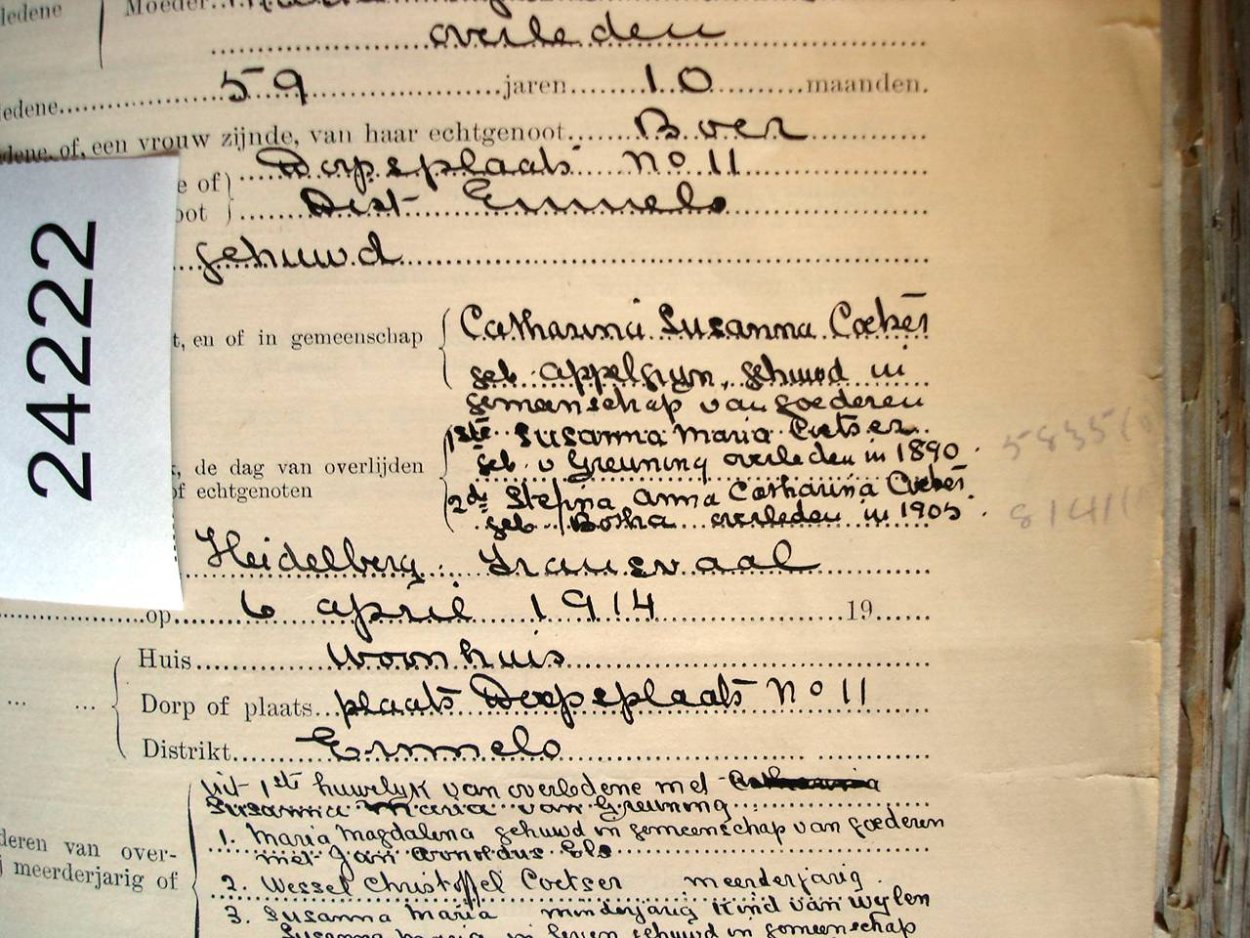 ledene Moeder
overleden
ledene 59 jaren 10 maanden.
edene of, een vrouw zijnde, van haar echtgenoot Boer
e of Dorpsplaats No 11
oot Dist Ermelo
gehuwd
t, en of in gemeenschap Catharina Susanna Coetser
geb. Appelgryn, gehuwd in
gemeenschap van goederen
1ste Susanna Maria Coetser
geb. v Greuning overleden in 1890.
k, de dag van overlijden
of echtgenoten
2de Stefina Anna Catharina Coetser
geb. Botha overleden in 1905.
Heidelberg. Transvaal
op 6 april 1914 19
Huis Woonhuis
Dorp of plaats plaats Dorpsplaats No 11
Distrikt Ermelo
Uit 1ste huwelyk van overledene met
Susanna Maria van Greuning
1. Maria Magdalena gehuwd in gemeenschap van goederen
met Jan Arnoldus Els
deren van over-
j meerderjarig of
2. Wessel Christoffel Coetser meerderjarig.
3. Susanna Maria minderjarig kind van wylen
Susanna Maria in leven gehuwd in gemeenschap
24222